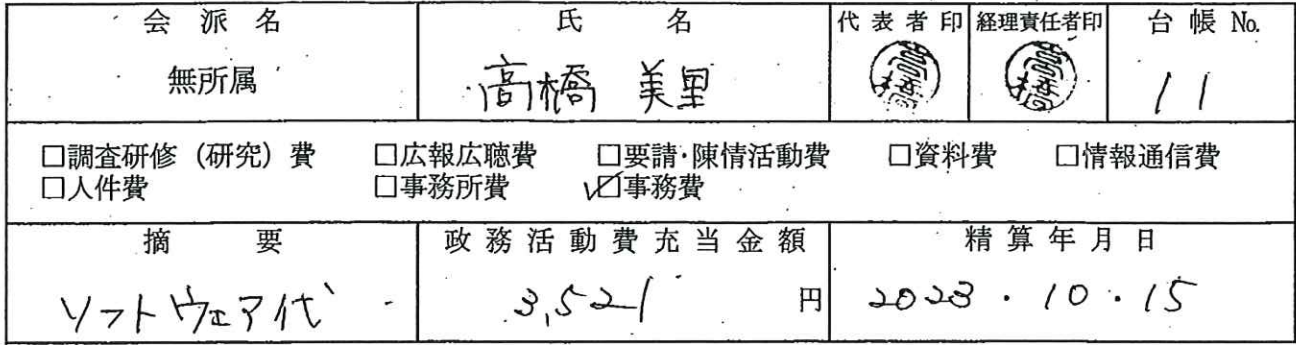 会派名 氏名 代表者印 経理責任者印 台帳No.
無所属 高橋 美里 高橋 高橋 11
□調査研修（研究）費 □広報広聴費 □要請・陳情活動費 □資料費 □情報通信費
□人件費 □事務所費 ☑事務費
摘要 政務活動費充当金額 精算年月日
ソフトウェア代 3,521円 2023・10・15